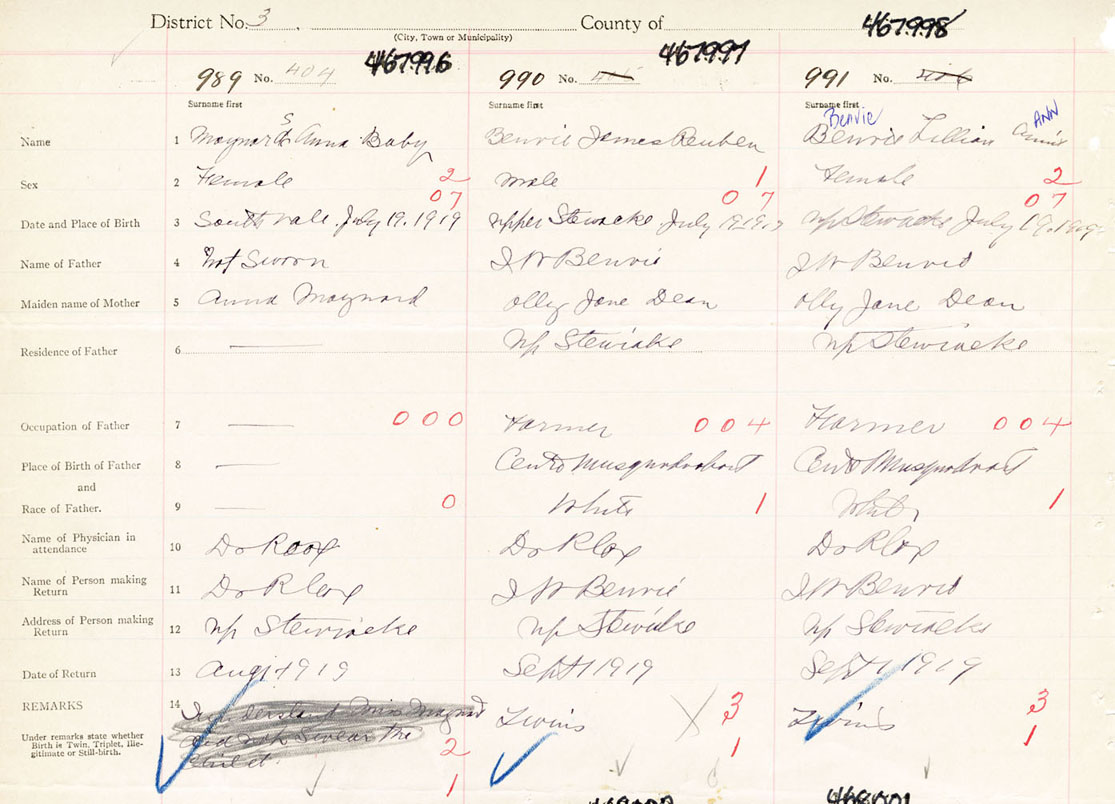 District No. 3 County of
(City, Town or Municipality)
467996 467997 467998
989 No. 404 990 No. 991 No.
Surname first Surname first Surname first
Benvie ANN
Name 1 Maynard Anna Baby Benvie James Reuben Benvie Lillian Annie
Sex 2 Female 2 Male 1 Female 2
07 07 07
Date and Place of Birth 3 South Vale July 19. 1919 Upper Stewiacke July 19. 1919 Up Stewiacke July 19. 1919
Name of Father 4 Not Sworn J W Benvie J W Benvie
Maiden name of Mother 5 Anna Maynard Olly Jane Dean Olly Jane Dean
Residence of Father 6 Up Stewiacke Up Stewiacke
Occupation of Father 7 000 Farmer 004 Farmer 004
Place of Birth of Father 8 Musquodoboit Musquodoboit
and
Race of Father. 9 0 White 1 White 1
Name of Physician in
attendance 10 Dr R Cox Dr R Cox Dr R Cox
Name of Person making
Return 11 Dr R Cox J W Benvie J W Benvie
Address of Person making
Return 12 Up Stewiacke Up Stewiacke Up Stewiacke
Date of Return 13 Aug 1 1919 Sept 1 1919 Sept 1 1919
REMARKS 14 I understand Miss Maynard Twins X 3 Twins 3
Under remarks state whether
Birth is Twin, Triplet, Ille-
gitimate or Still-birth.
did not Swear the 2 1 1
child. 1
468001